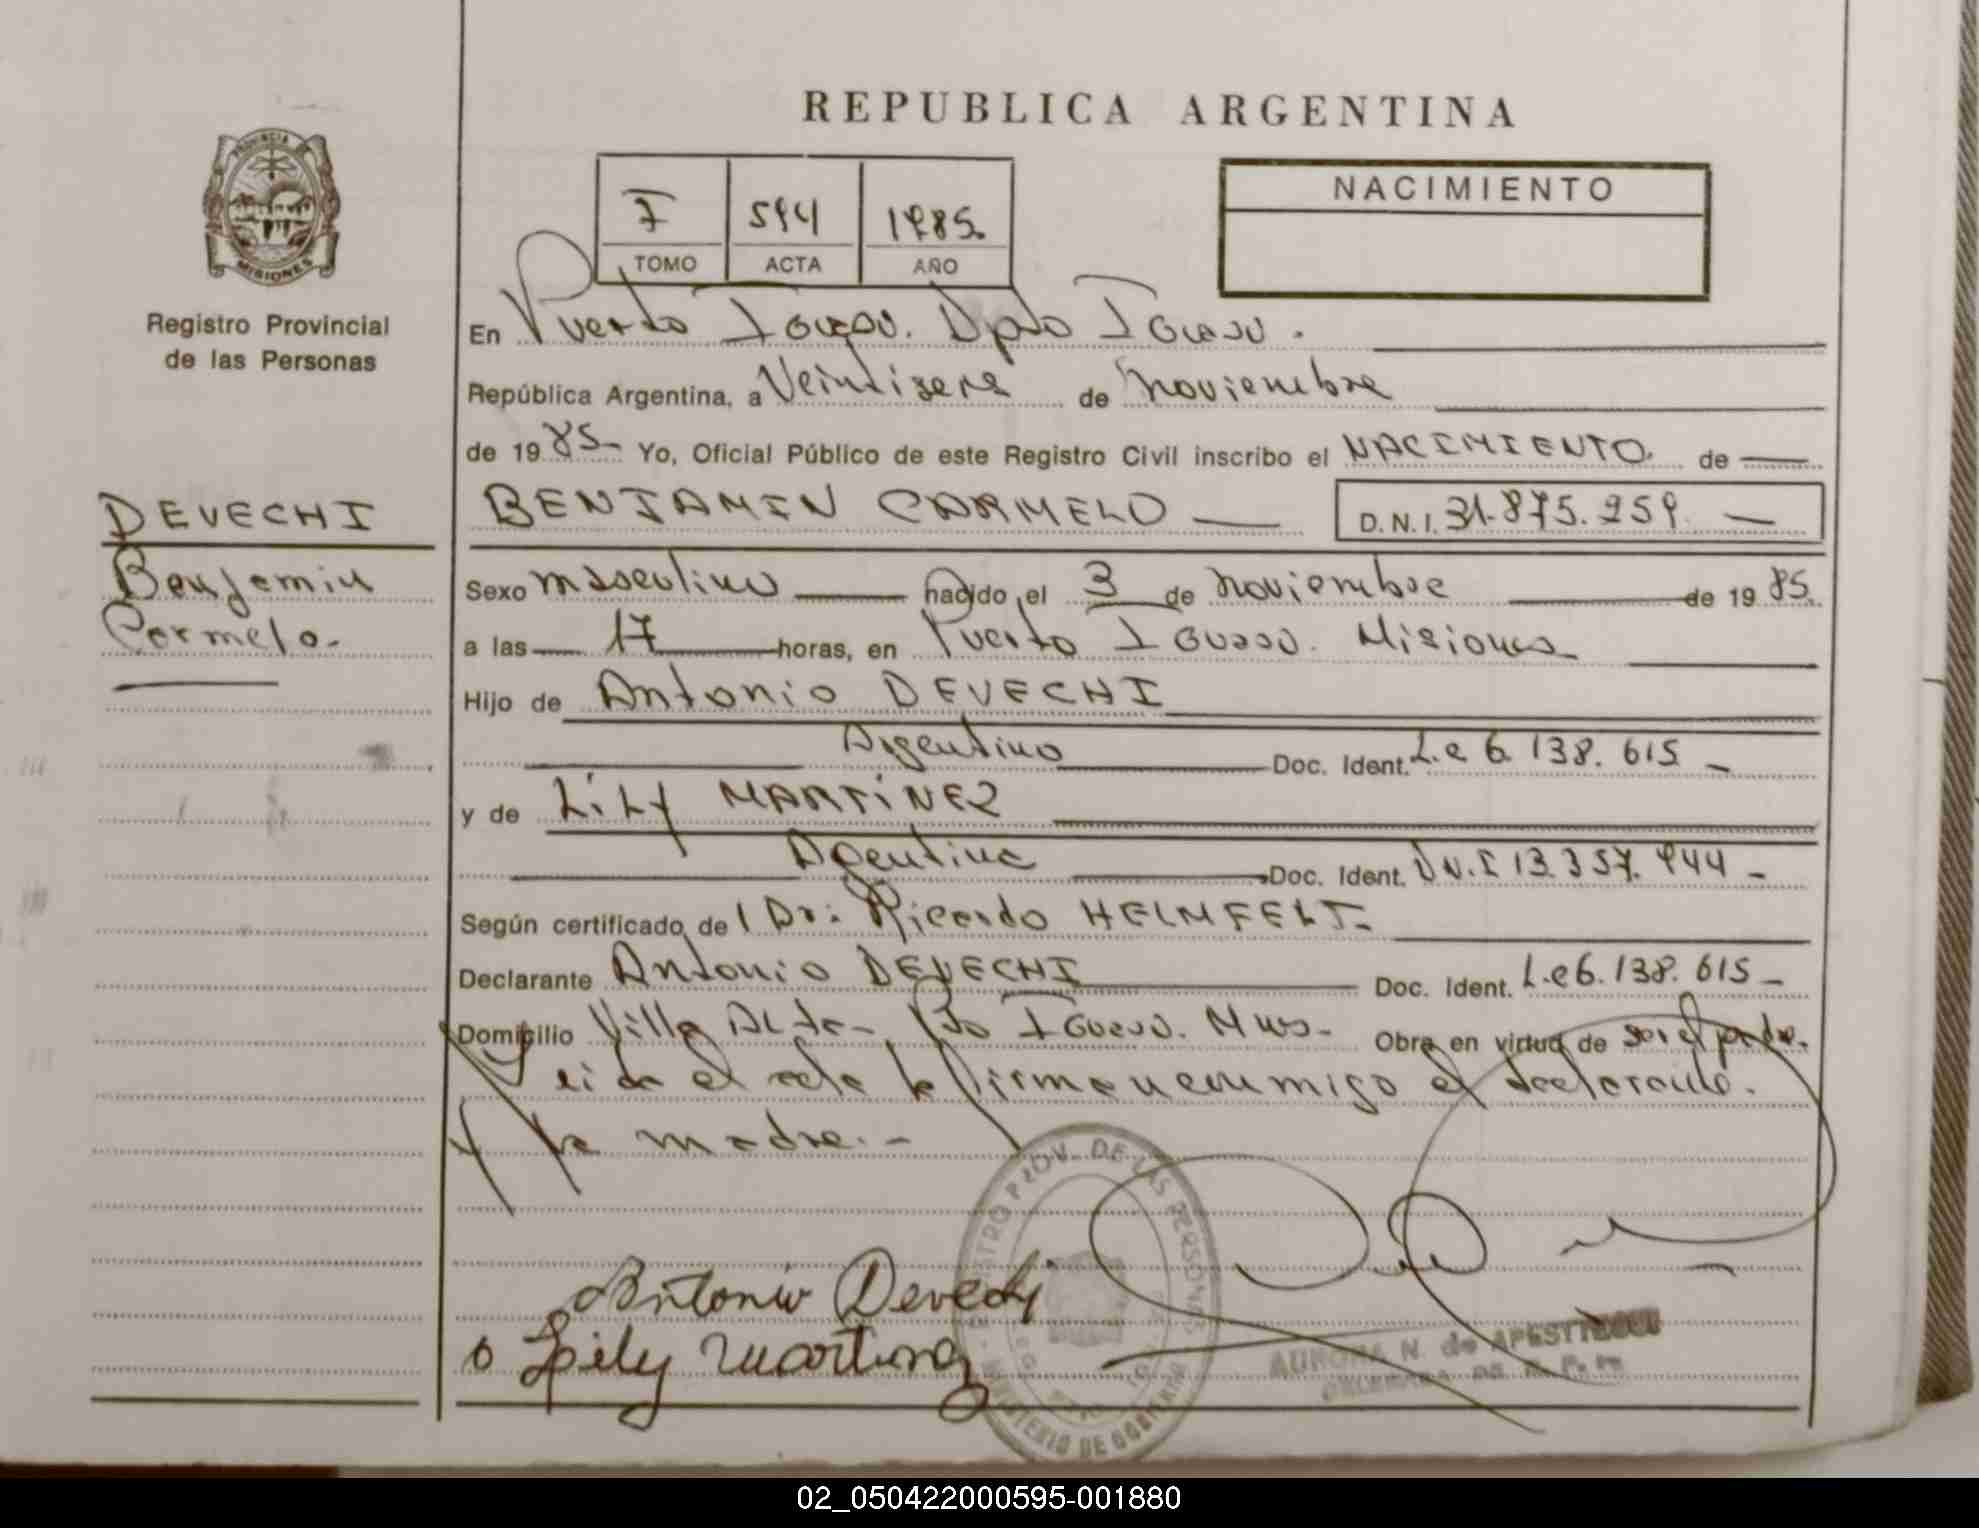 REPUBLICA ARGENTINA
PROVINCIA DE
MISIONES
Registro Provincial
de las Personas
7 594 1985.
TOMO ACTA AÑO
NACIMIENTO
En Puerto Iguazu. Dpto Iguazu.
República Argentina, a Veintiseis de noviembre
de 1985- Yo, Oficial Público de este Registro Civil inscribo el NACIMIENTO. de
DEVECHI
Benjamin
Carmelo.
BENJAMIN CARMELO — D.N.I. 31.875.259. —
Sexo masculino nacido el 3 de noviembre de 1985.
a las 17 horas, en Puerto Iguazu. Misiones
Hijo de Antonio DEVECHI
Argentino Doc. Ident. L.e 6.138.615 -
y de LiLy MARTiNEZ
Argentina Doc. Ident. D.N.I 13.357.944 -
Según certificado de l Dr: Ricardo HELMFELT-
Declarante Antonio DEVECHI Doc. Ident. L.e 6.138.615 -
Domicilio Villa Alta- Pto Iguazu. Mnes- Obra en virtud de ser el padre.
Leida el acta la firman conmigo el declarante.
y la madre.-
Antonio Devechi
Lily Martinez
REGISTRO PROV. DE LAS PERSONAS
MINISTERIO DE GOBIERNO
AURORA N. de APESTEGUI
02_050422000595-001880